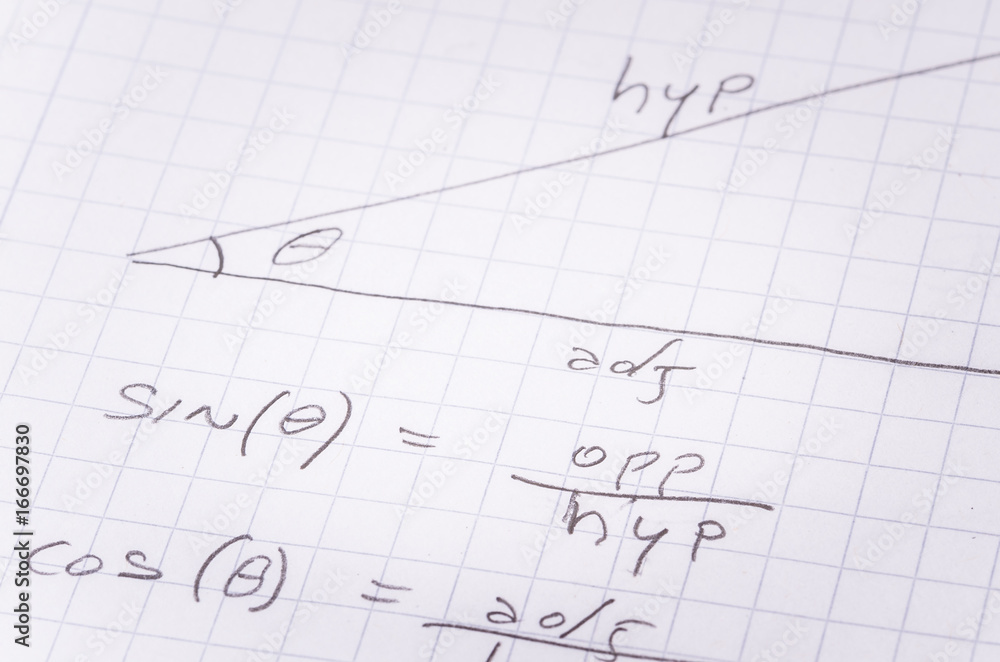 hyp
θ
adj
sin(θ) = opp / hyp
cos(θ) = adj /
Adobe Stock | #166697830
Adobe Stock